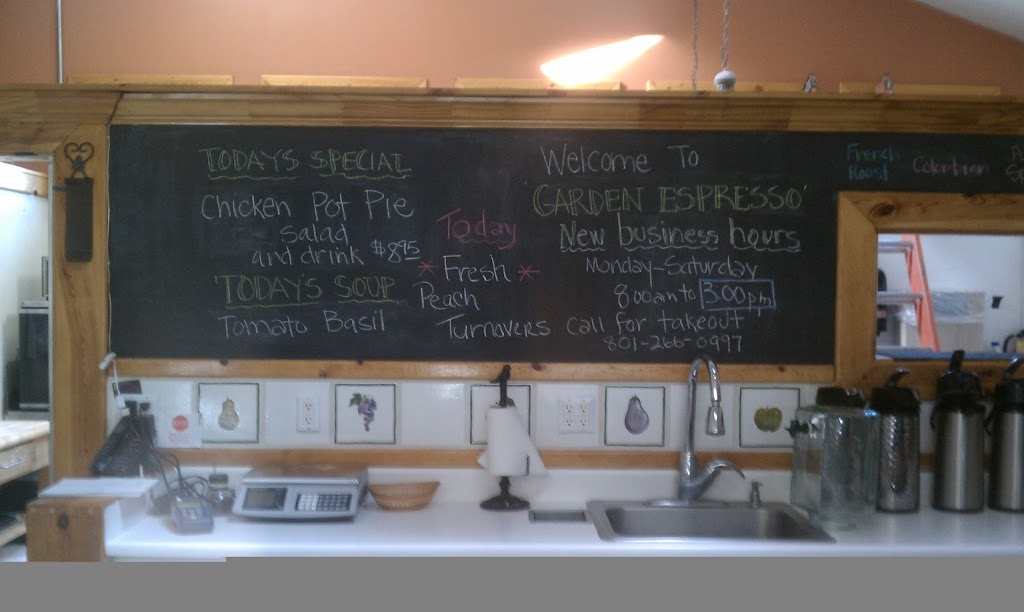 TODAY'S SPECIAL
Chicken Pot Pie
Salad
and drink $8.95
TODAY'S SOUP
Tomato Basil
Today
* Fresh *
Peach
Turnovers
Welcome To
'GARDEN ESPRESSO'
New business hours
Monday-Saturday
8:00am to 3:00pm
call for takeout
801-266-0997
French
Roast
Colombian